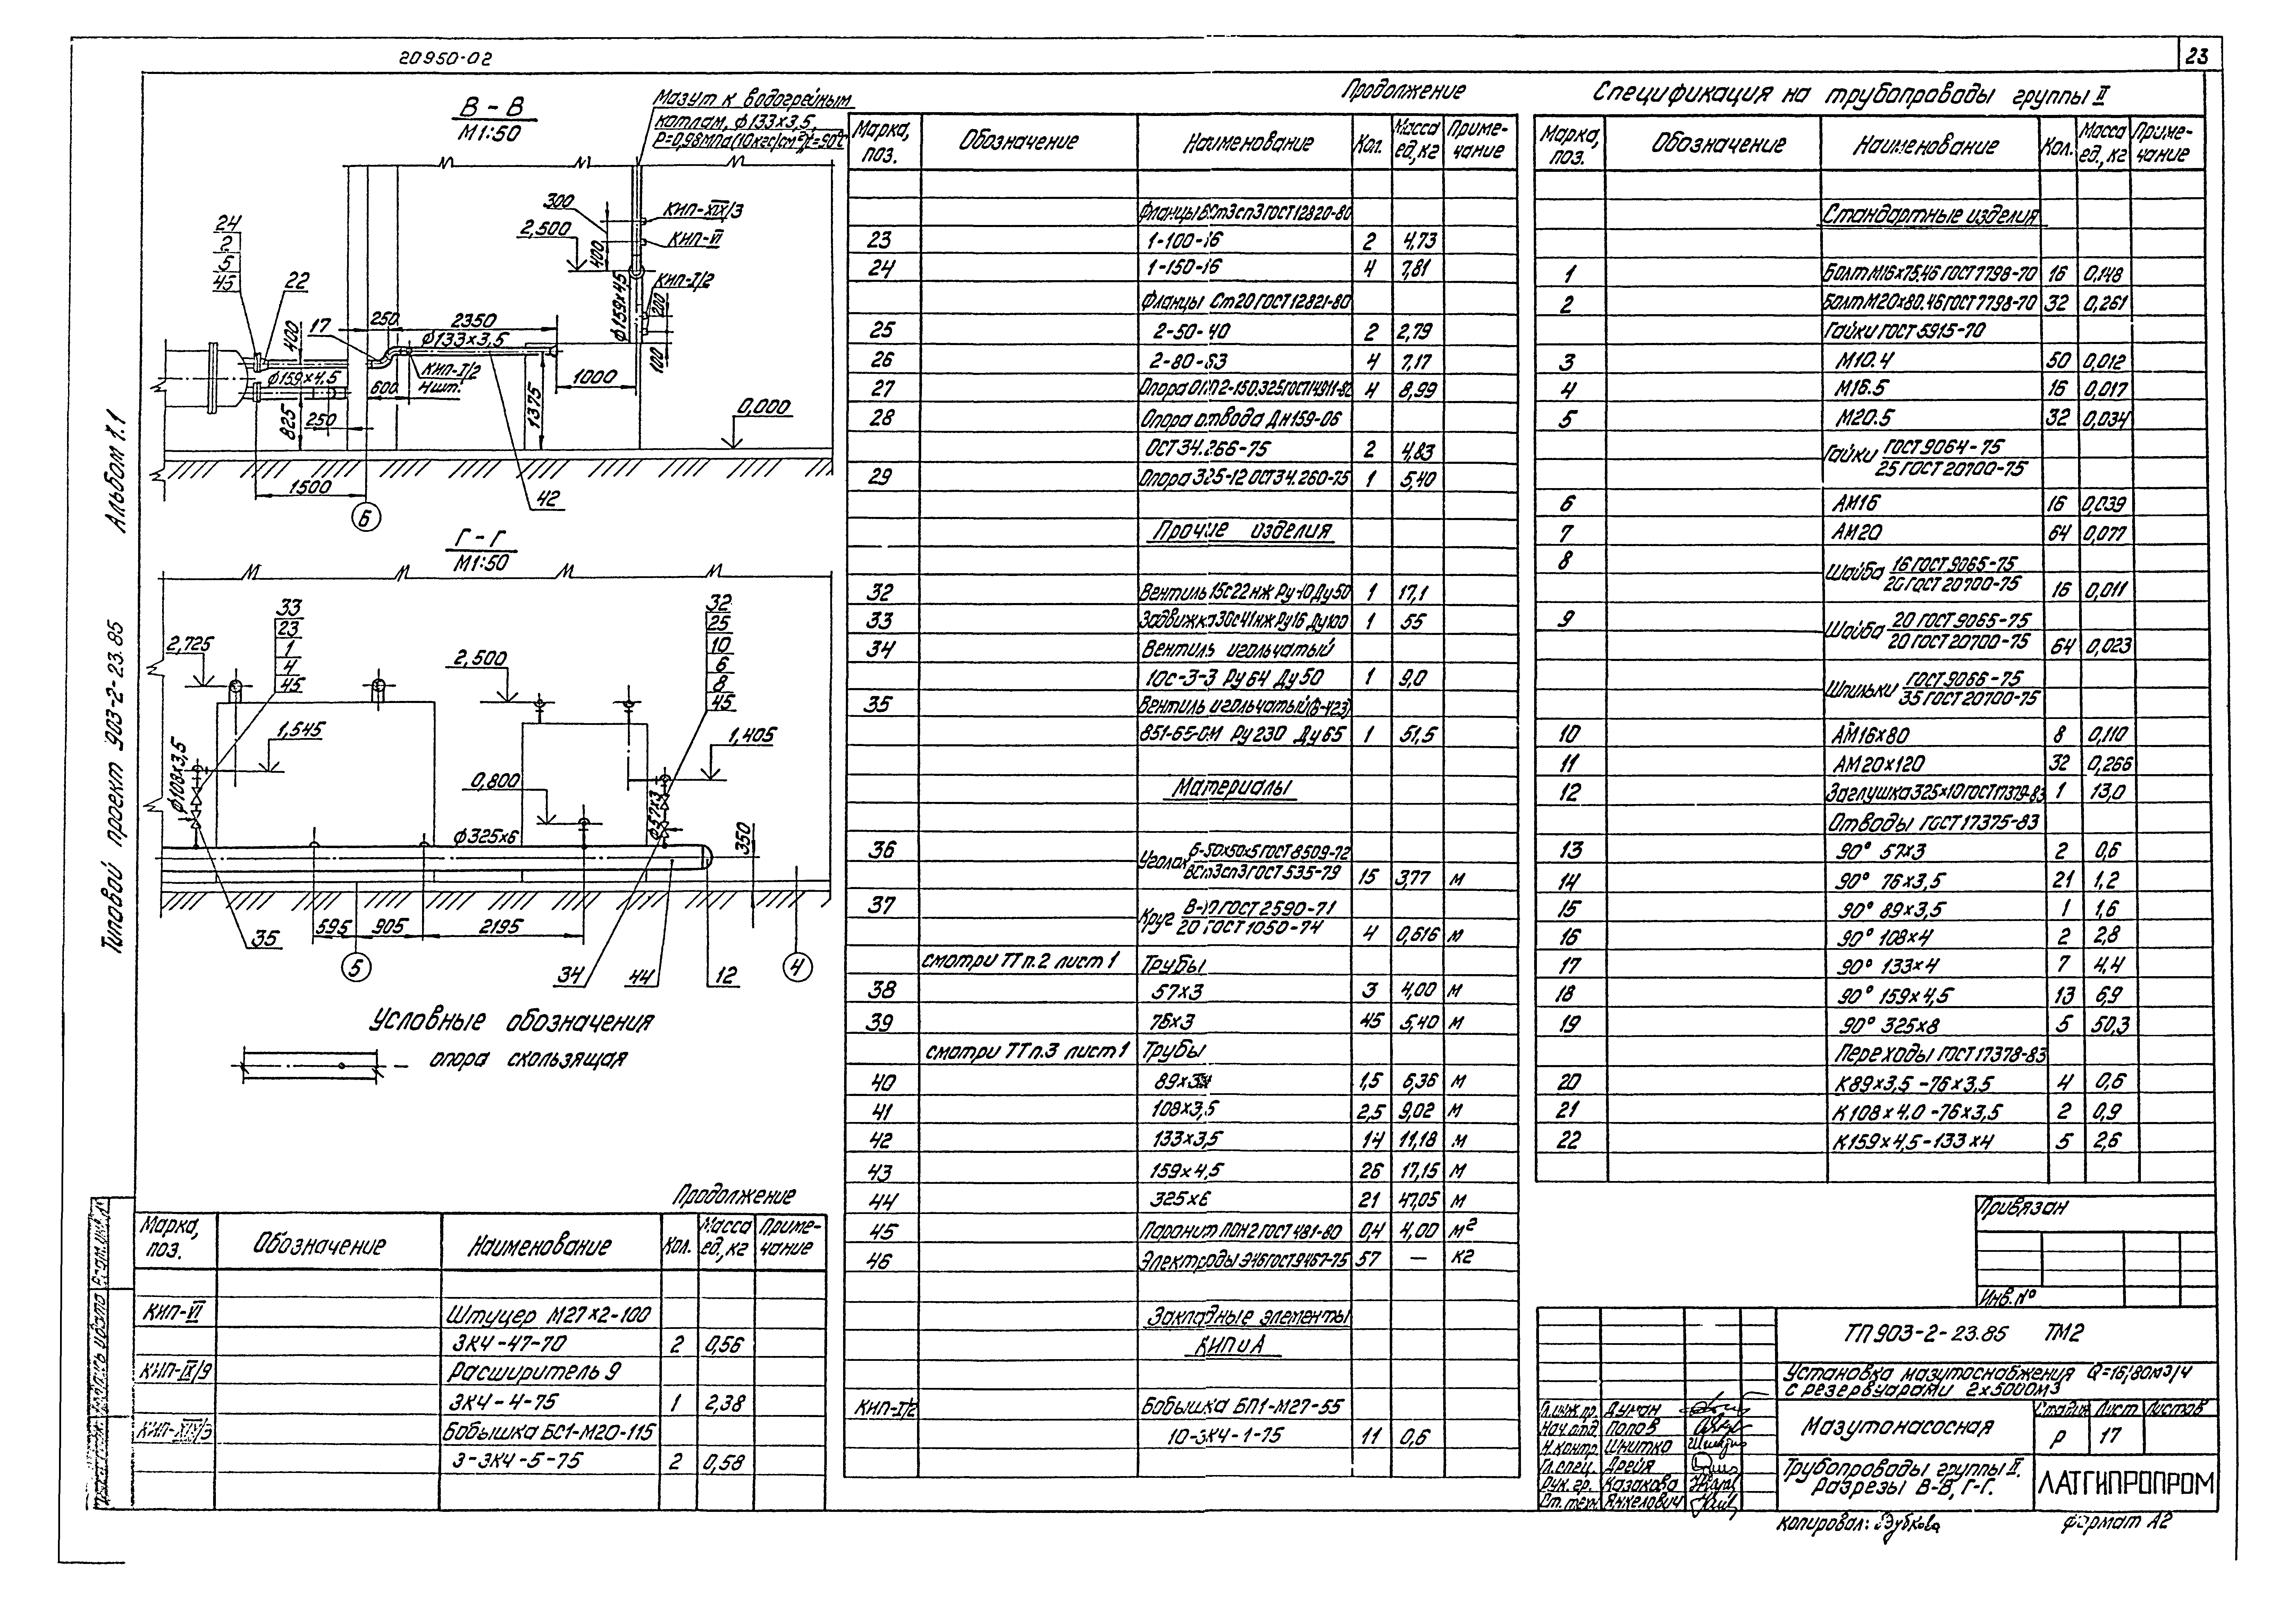 20950-02
23
Альбом 1.1
Типовой проект 903-2-23.85
В-В
М1:50
Мазут к водогрейным
котлам, ф133х3,5,
24
2
5
45
22
17
400
250
2350
ф133х3,5
ф159х4,5
600
КИП-I/2
4шт.
825
250
1500
Б
42
1375
1000
300
2,500
400
КИП-XIX/3
КИП-VI
КИП-I/2
ф159х4,5
200
100
0,000
Г-Г
М1:50
33
23
1
4
45
2,725
1,545
ф108х3,5
32
25
10
6
8
45
2,500
1,405
0,800
ф57х3
ф325х6
350
595
905
2195
35
5
34
44
12
4
Условные обозначения
опора скользящая
Продолжение
Марка, поз. Обозначение Наименование Кол. Масса ед., кг Приме-чание
КИП-VI Штуцер М27х2-100
ЗК4-47-70 2 0,56
КИП-IX/9 Расширитель 9
ЗК4-4-75 1 2,38
КИП-XIX/3 Бобышка БС1-М20-115
3-ЗК4-5-75 2 0,58
Продолжение
Марка, поз. Обозначение Наименование Кол. Масса ед., кг Приме-чание
Фланцы ВСт3сп3 ГОСТ 12820-80
23 1-100-16 2 4,73
24 1-150-16 4 7,81
Фланцы Ст20 ГОСТ 12821-80
25 2-50-40 2 2,79
26 2-80-63 4 7,17
27 4 8,99
28 Опора отвода Дн159-06
ОСТ 34.266-75 2 4,83
29 Опора 325-12 ОСТ 34.260-75 1 5,40
Прочие изделия
32 Вентиль 15с22нж Ру40 Ду50 1 17,1
33 Задвижка 30с41нж Ру16 Ду100 1 55
34 Вентиль игольчатый
10с-3-3 Ру64 Ду50 1 9,0
35 Вентиль игольчатый (В-423)
851-65-ОМ Ру230 Ду65 1 51,5
Материалы
36 Уголок Б-50х50х5 ГОСТ 8509-72
ВСт3сп3 ГОСТ 535-79 15 3,77 м
37 Круг В-10 ГОСТ 2590-71
20 ГОСТ 1050-74 4 0,616 м
смотри ТТ п.2 лист 1 Трубы
38 57х3 3 4,00 м
39 76х3 45 5,40 м
смотри ТТ п.3 лист 1 Трубы
40 1,5 6,36 м
41 108х3,5 2,5 9,02 м
42 133х3,5 14 11,18 м
43 159х4,5 26 17,15 м
44 325х6 21 47,05 м
45 Паронит ПОН2 ГОСТ 481-80 0,4 4,00 м²
46 Электроды Э46 ГОСТ 9467-75 57 — кг
Закладные элементы
КИПиА
КИП-I/2 Бобышка БП1-М27-55
10-ЗК4-1-75 11 0,6
Спецификация на трубопроводы группы II
Марка, поз. Обозначение Наименование Кол. Масса ед., кг Приме-чание
Стандартные изделия
1 Болт М16х75.46 ГОСТ 7798-70 16 0,148
2 Болт М20х80.46 ГОСТ 7798-70 32 0,261
Гайки ГОСТ 5915-70
3 М10.4 50 0,012
4 М16.5 16 0,017
5 М20.5 32 0,034
Гайки ГОСТ 9064-75
25 ГОСТ 20700-75
6 АМ16 16 0,039
7 АМ20 64 0,077
8 Шайба 16 ГОСТ 9065-75
20 ГОСТ 20700-75 16 0,011
9 Шайба 20 ГОСТ 9065-75
20 ГОСТ 20700-75 64 0,023
Шпильки ГОСТ 9066-75
35 ГОСТ 20700-75
10 АМ16х80 8 0,110
11 АМ20х120 32 0,266
12 Заглушка 325х10 ГОСТ 17379-83 1 13,0
Отводы ГОСТ 17375-83
13 90° 57х3 2 0,6
14 90° 76х3,5 21 1,2
15 90° 89х3,5 1 1,6
16 90° 108х4 2 2,8
17 90° 133х4 7 4,4
18 90° 159х4,5 13 6,9
19 90° 325х8 5 50,3
Переходы ГОСТ 17378-83
20 К89х3,5-76х3,5 4 0,6
21 К108х4.0-76х3,5 2 0,9
22 К159х4,5-133х4 5 2,6
Привязан
Инв.№
ТП 903-2-23.85 ТМ2
Установка мазутоснабжения Q=16;80м3/ч
с резервуарами 2х5000м3
Гл.инж.пр. Думан
Нач.отд. Попов
Н.контр. Шнитко
Гл.спец. Дрейя
Рук.гр. Казакова
Ст.техн. Янкелович
Мазутонасосная
Стадия Лист Листов
Р 17
Трубопроводы группы II.
Разрезы В-В, Г-Г.
ЛАТГИПРОПРОМ
Копировал: Зубкова
формат А2